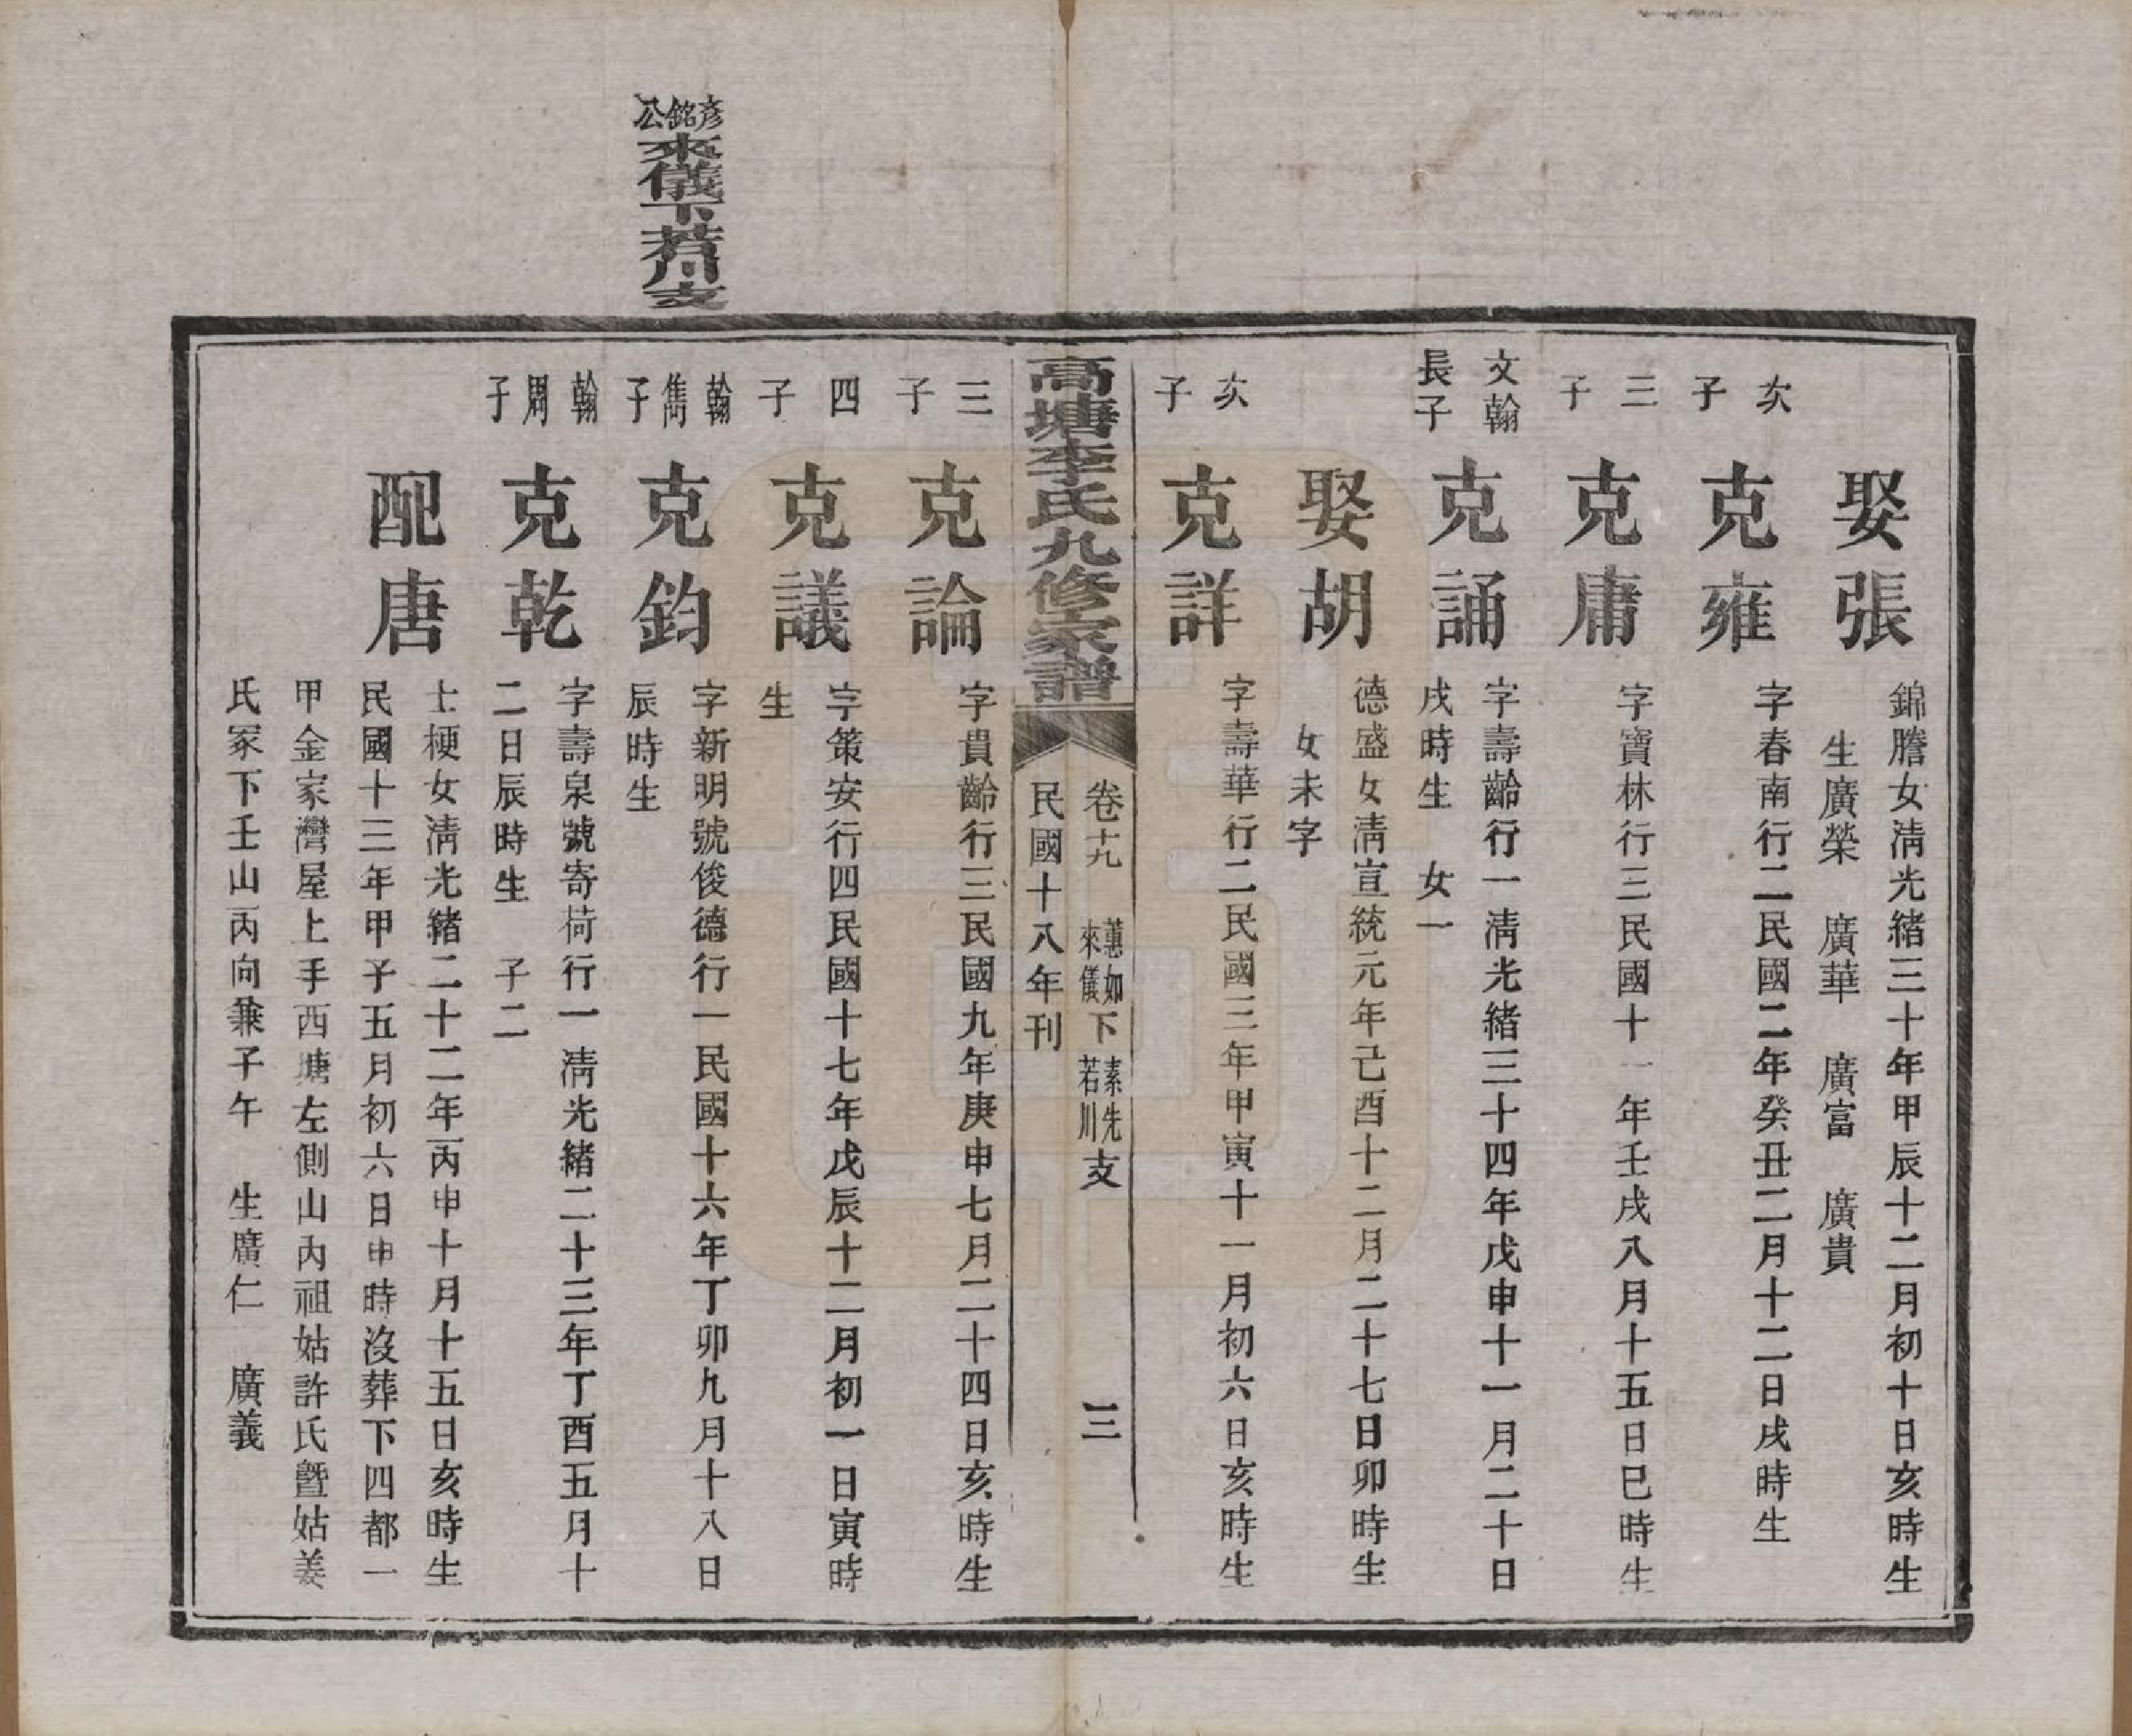 彥銘公來儀下若川支
娶張
錦膽女淸光緒三十年甲辰十二月初十日亥時生
生廣榮　廣華　廣富　廣貴
次子
克雍
字春南行二民國二年癸丑二月十二日戌時生
三子
克庸
字寶林行三民國十一年壬戌八月十五日巳時生
文翰長子
克誦
字壽齡行一淸光緒三十四年戊申十一月二十日
戌時生　女一
娶胡
德盛女淸宣統元年己酉十二月二十七日卯時生
女未字
次子
克詳
字壽華行二民國三年甲寅十一月初六日亥時生
高塘李氏九修家譜
卷十九　蕙如來儀下素先若川支　三
民國十八年刊
三子
克論
字貴齡行三民國九年庚申七月二十四日亥時生
四子
克議
字策安行四民國十七年戊辰十二月初一日寅時
生
翰雋子
克鈞
字新明號俊德行一民國十六年丁卯九月十八日
辰時生
翰周子
克乾
字壽泉號寄荷行一淸光緒二十三年丁酉五月十
二日辰時生　子二
配唐
士梗女淸光緒二十二年丙申十月十五日亥時生
民國十三年甲子五月初六日申時沒葬下四都一
甲金家灣屋上手西塘左側山內祖姑許氏曁姑姜
氏冢下壬山丙向兼子午　生廣仁　廣義